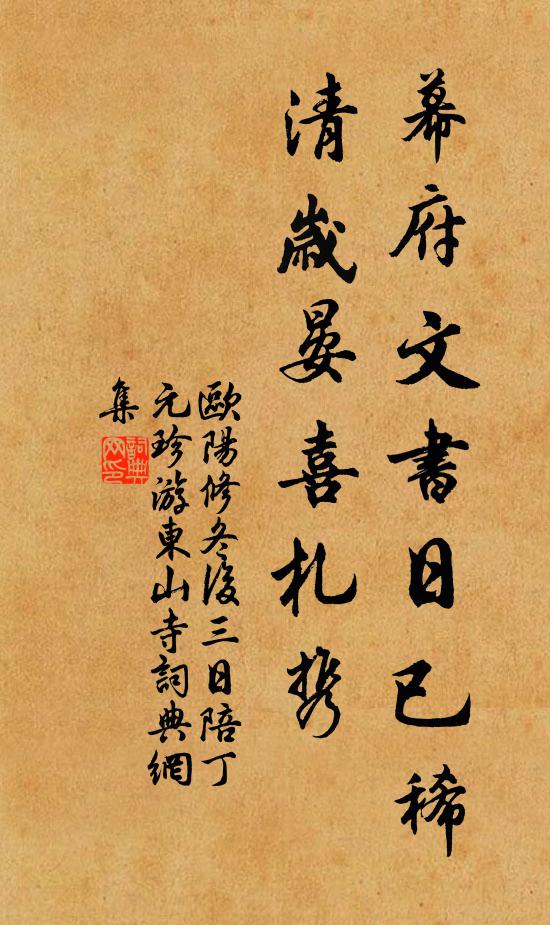 幕府文書日已稀
清歲晏喜札携
歐陽修冬後三日陪丁
元珍游東山寺詞典網
集
詞典网印